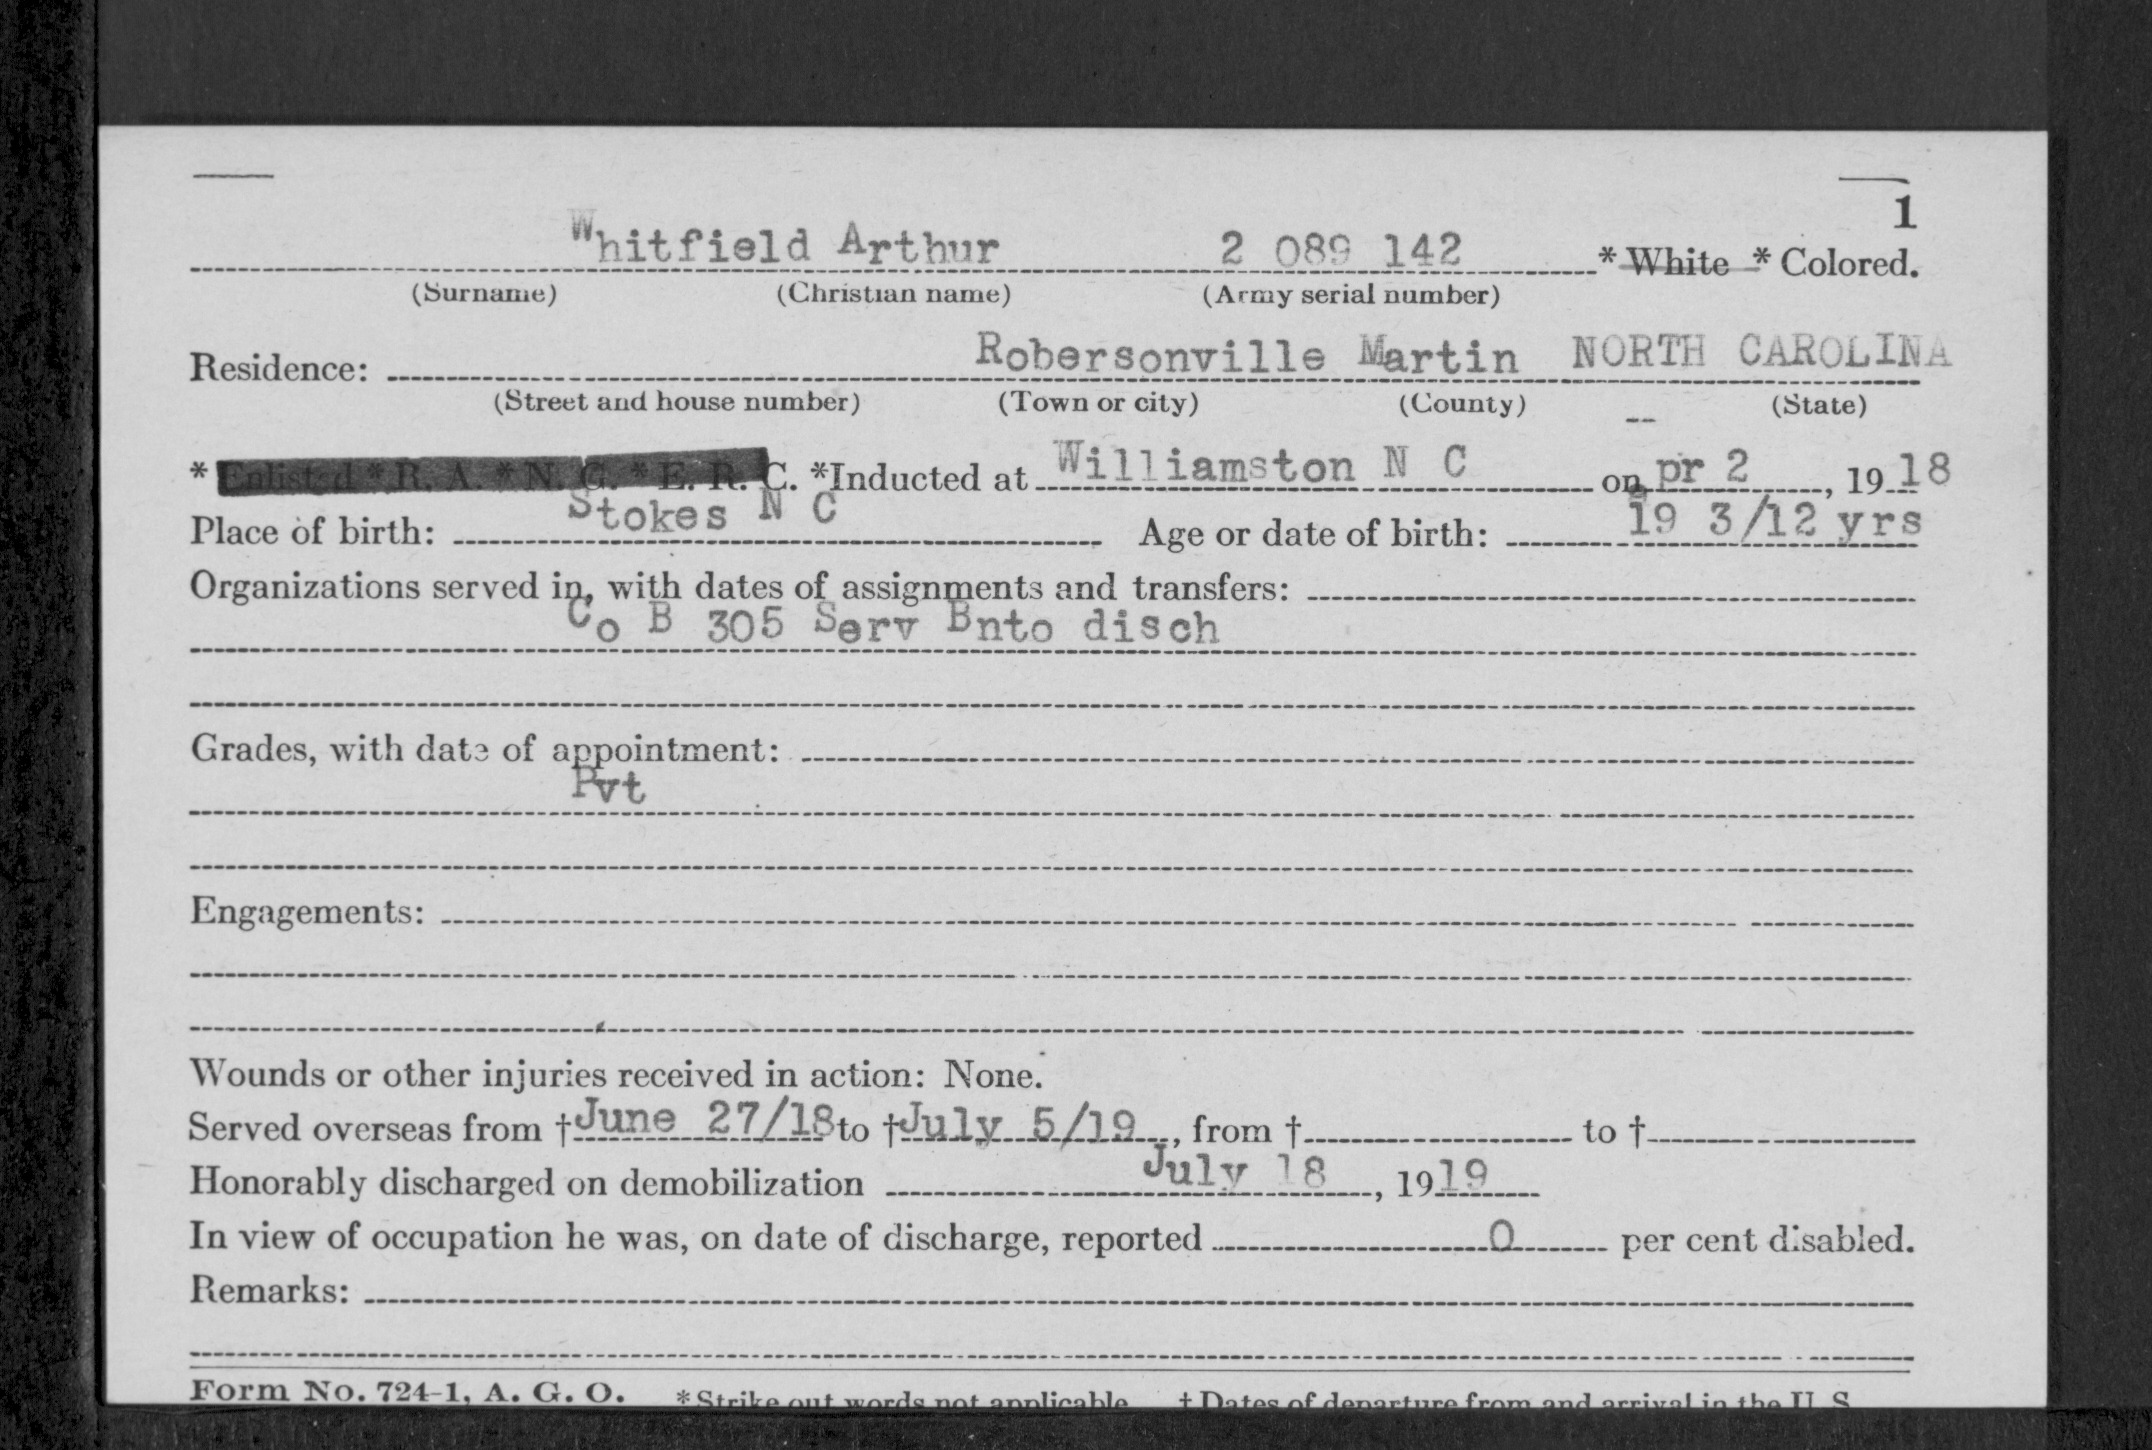 1
Whitfield Arthur 2 089 142 * White * Colored.
(Surname) (Christian name) (Army serial number)
Residence: Robersonville Martin NORTH CAROLINA
(Street and house number) (Town or city) (County) (State)
* Enlisted * R. A. * N. G. * E. R. C. *Inducted at Williamston N C on pr 2, 19 18
Place of birth: Stokes N C Age or date of birth: 19 3/12 yrs
Organizations served in, with dates of assignments and transfers:
Co B 305 Serv Bnto disch
Grades, with date of appointment:
Pvt
Engagements:
Wounds or other injuries received in action: None.
Served overseas from †June 27/18 to †July 5/19, from † to †
Honorably discharged on demobilization July 18, 1919
In view of occupation he was, on date of discharge, reported 0 per cent disabled.
Remarks:
Form No. 724-1, A. G. O. *Strike out words not applicable †Dates of departure from and arrival in the U S